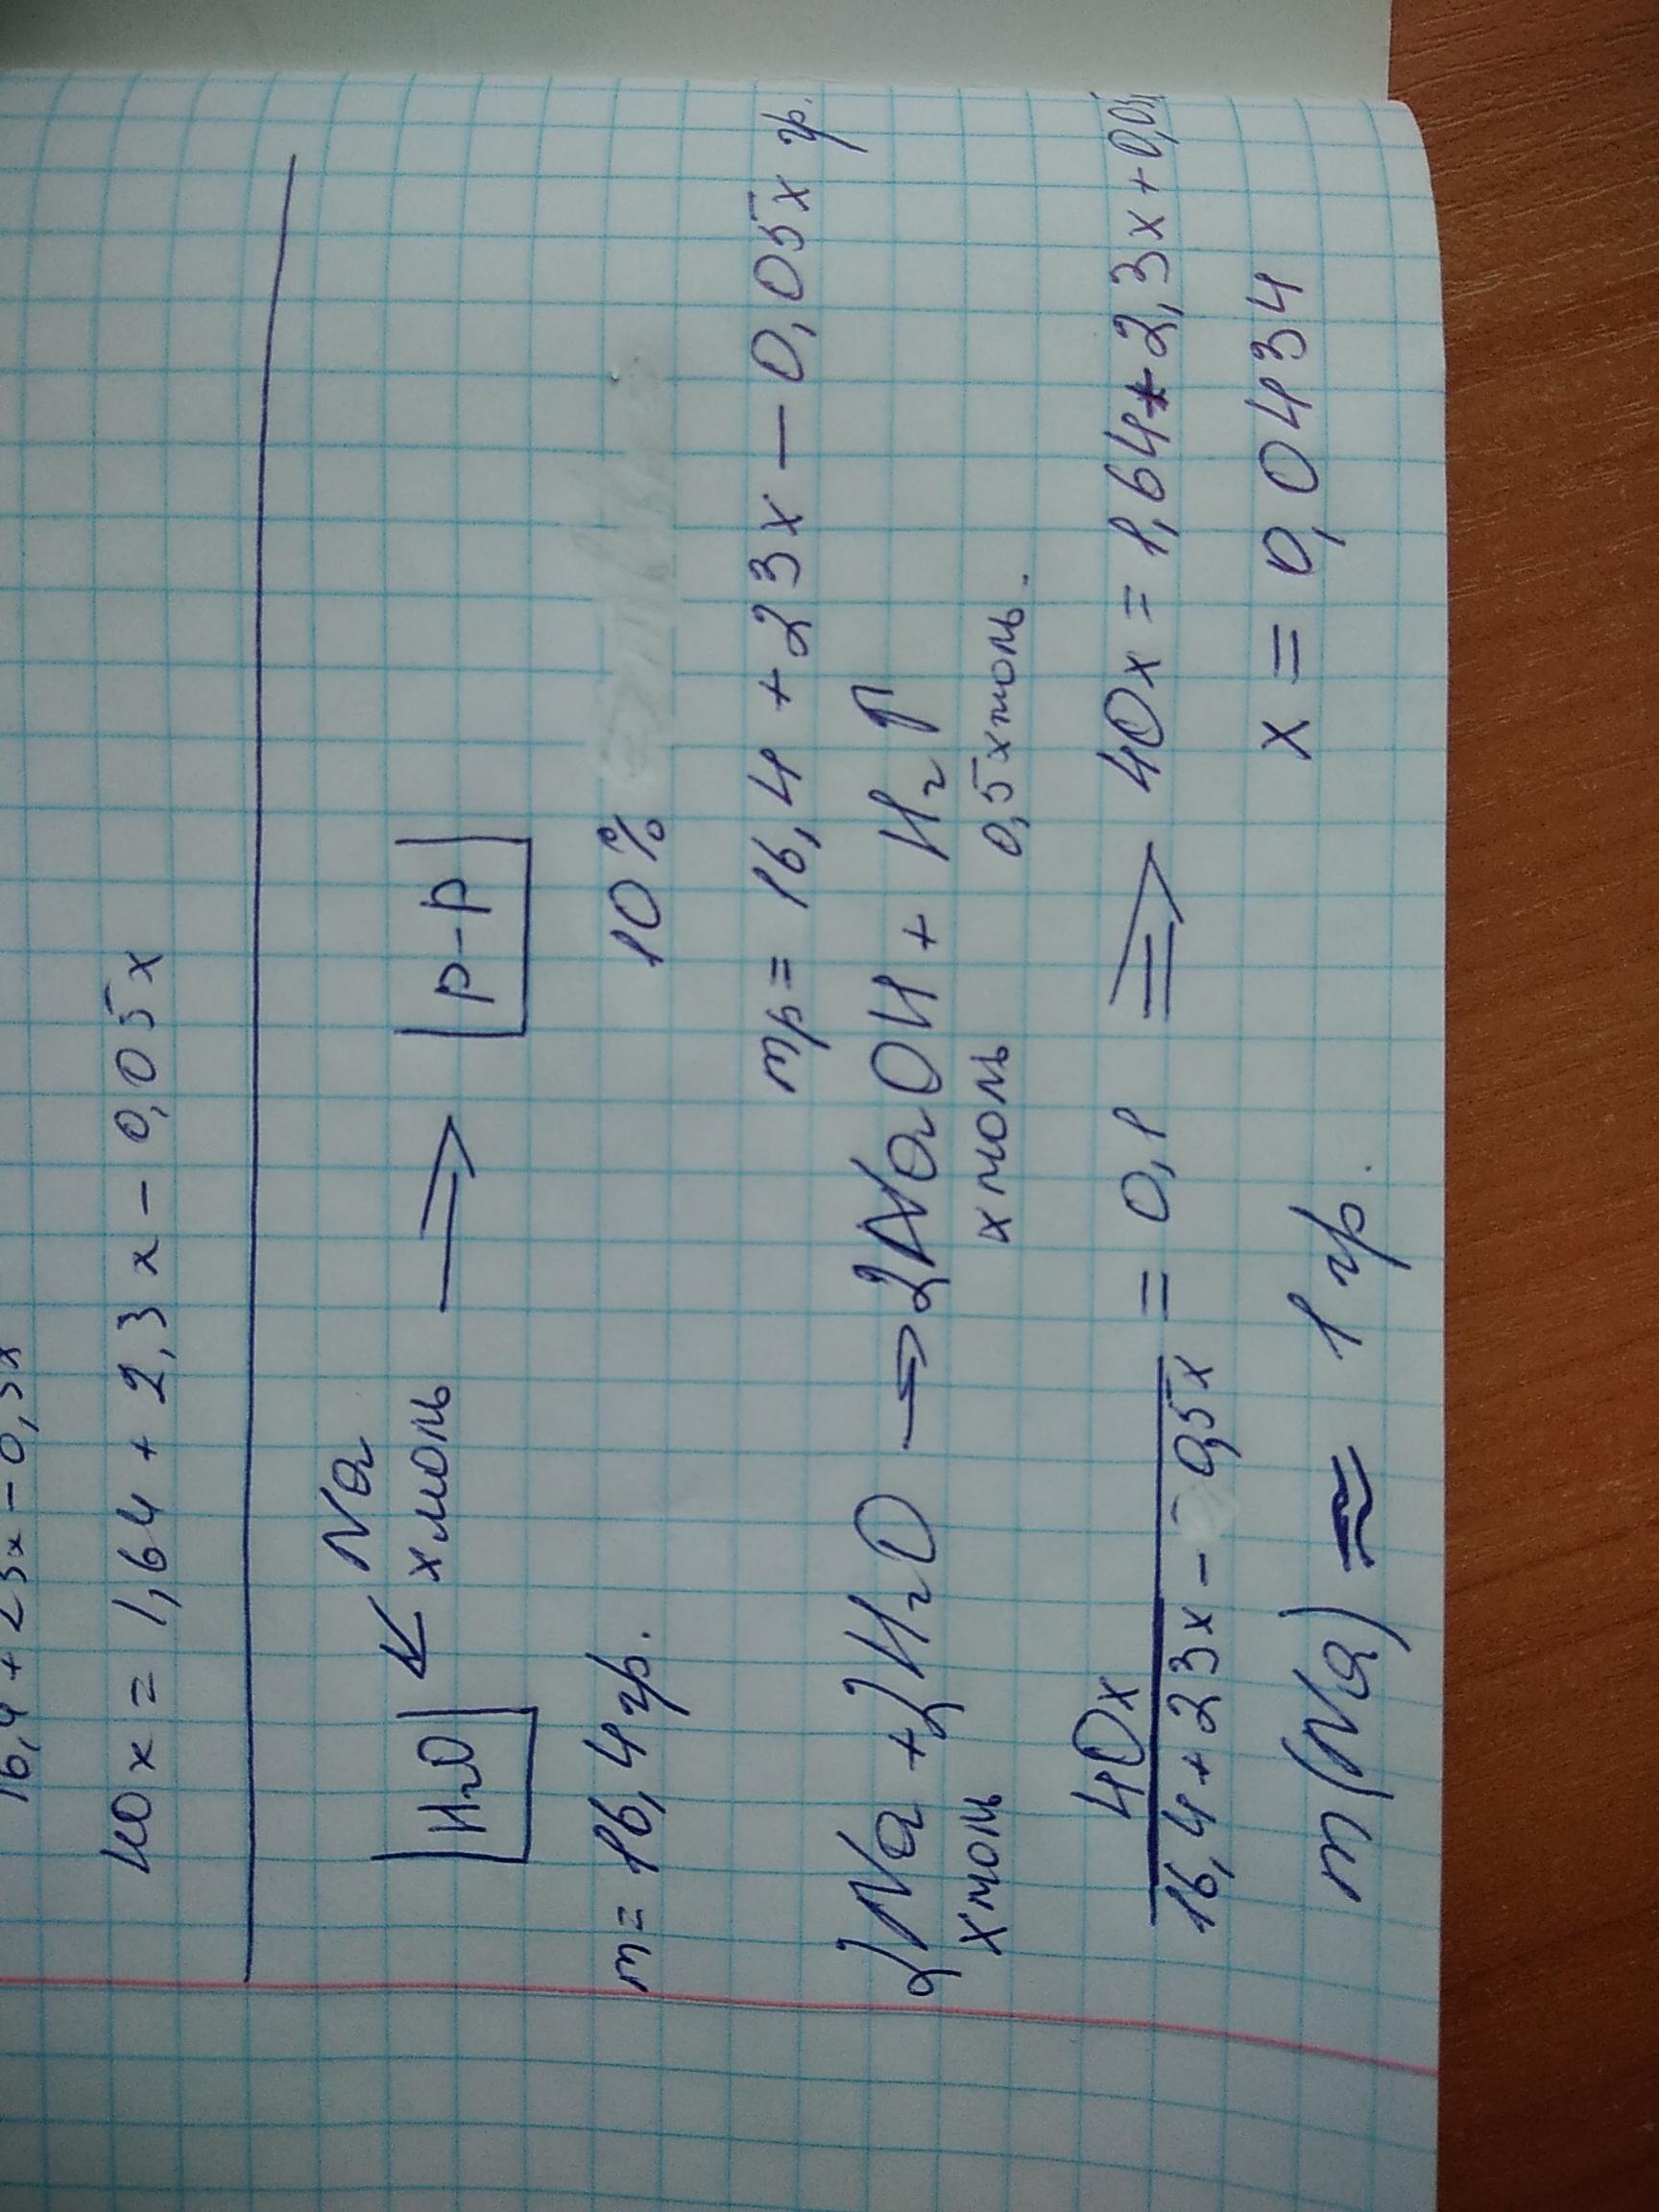 40x = 1,64 + 2,3x - 0,05x
Na
H₂O x моль ⟹ р-р
m = 16,4 гр. 10%
mр = 16,4 + 23x - 0,05x гр.
2Na + 2H₂O → 2NaOH + H₂↑
x моль x моль 0,5x моль.
40x / 16,4 + 23x - 0,5x = 0,1 ⟹ 40x = 1,64 + 2,3x +
x = 0,0434
m(Na) ≈ 1 гр.